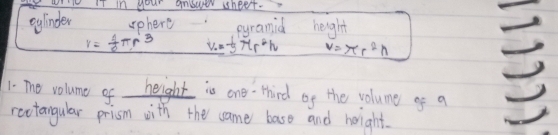 it in your answer sheet.
cylinder sphere pyramid height
v = 4/3 πr³ v = 1/3 πr²h v = πr²h
1- The volume of height is one-third of the volume of a
rectangular prism with the same base and height.